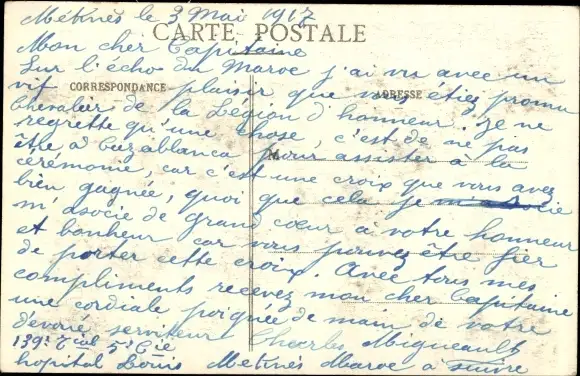 Méknès le 3 Mai 1917
CARTE POSTALE
Mon cher Capitaine
Sur l'écho du Maroc j'ai vu avec un
vif plaisir que vous étiez promu
CORRESPONDANCE
ADRESSE
Chevalier de la Légion d'honneur. Je ne
regrette qu'une chose, c'est de ne pas
M
être à Cazablanca pour assister à la
cérémonie, car c'est une croix que vous avez
bien gagnée, quoi que cela je
m'asocie de grand cœur a votre honneur
et bonheur car vous pouvez être fier
de porter cette croix. Avec tous mes
compliments recevez mon cher Capitaine
une cordiale poignée de main de votre
dévoué serviteur Charles Migueault
139e Tial 5e Cie
hopital Louis Meknès Maroc à suivre